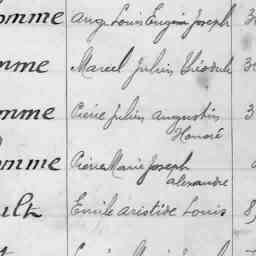 omme Aug. Louis Eugène Joseph 3
mme Marcel Julien Théodule 3
omme Pierre Julien Augustin 3
Honoré
omme Pierre Marie Joseph
Alexandre
ult Emile Aristide Louis 8